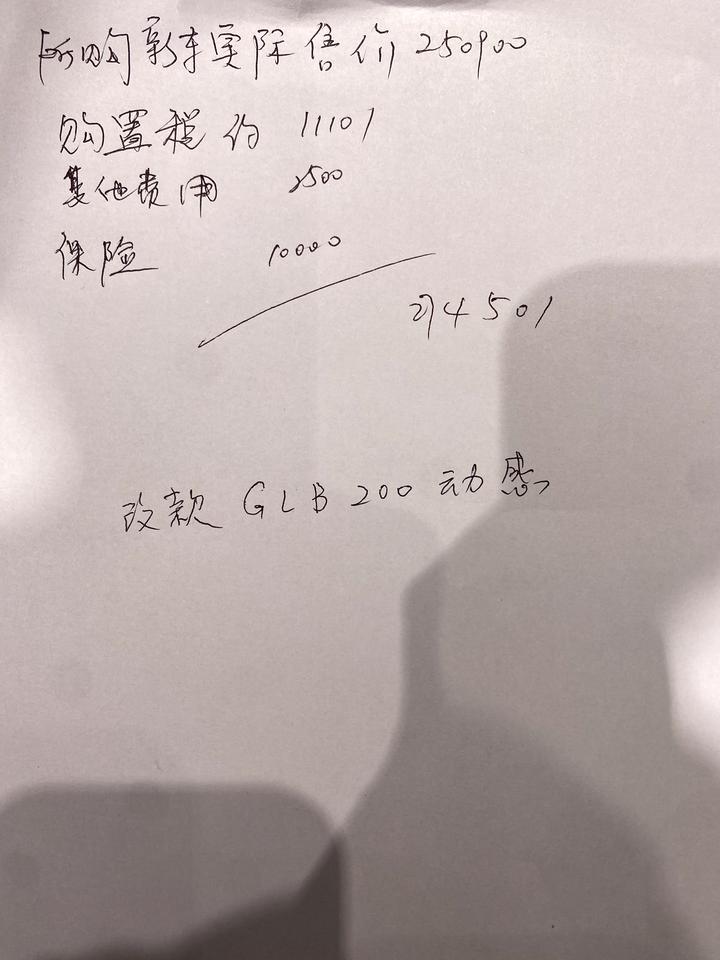 所购新车实际售价 250900
购置税约 11101
其他费用 2500
保险 10000
274501
改款 GLB 200 动感